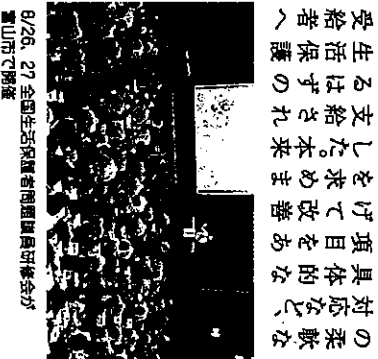 の柔軟な
対応など、
具体的な
項目をあ
げて改善
を求めま
した。本来
支給され
るはずの
生活保護
受給者へ
8/26, 27 全国生活保護者問題議員研修会が
富山市で開催